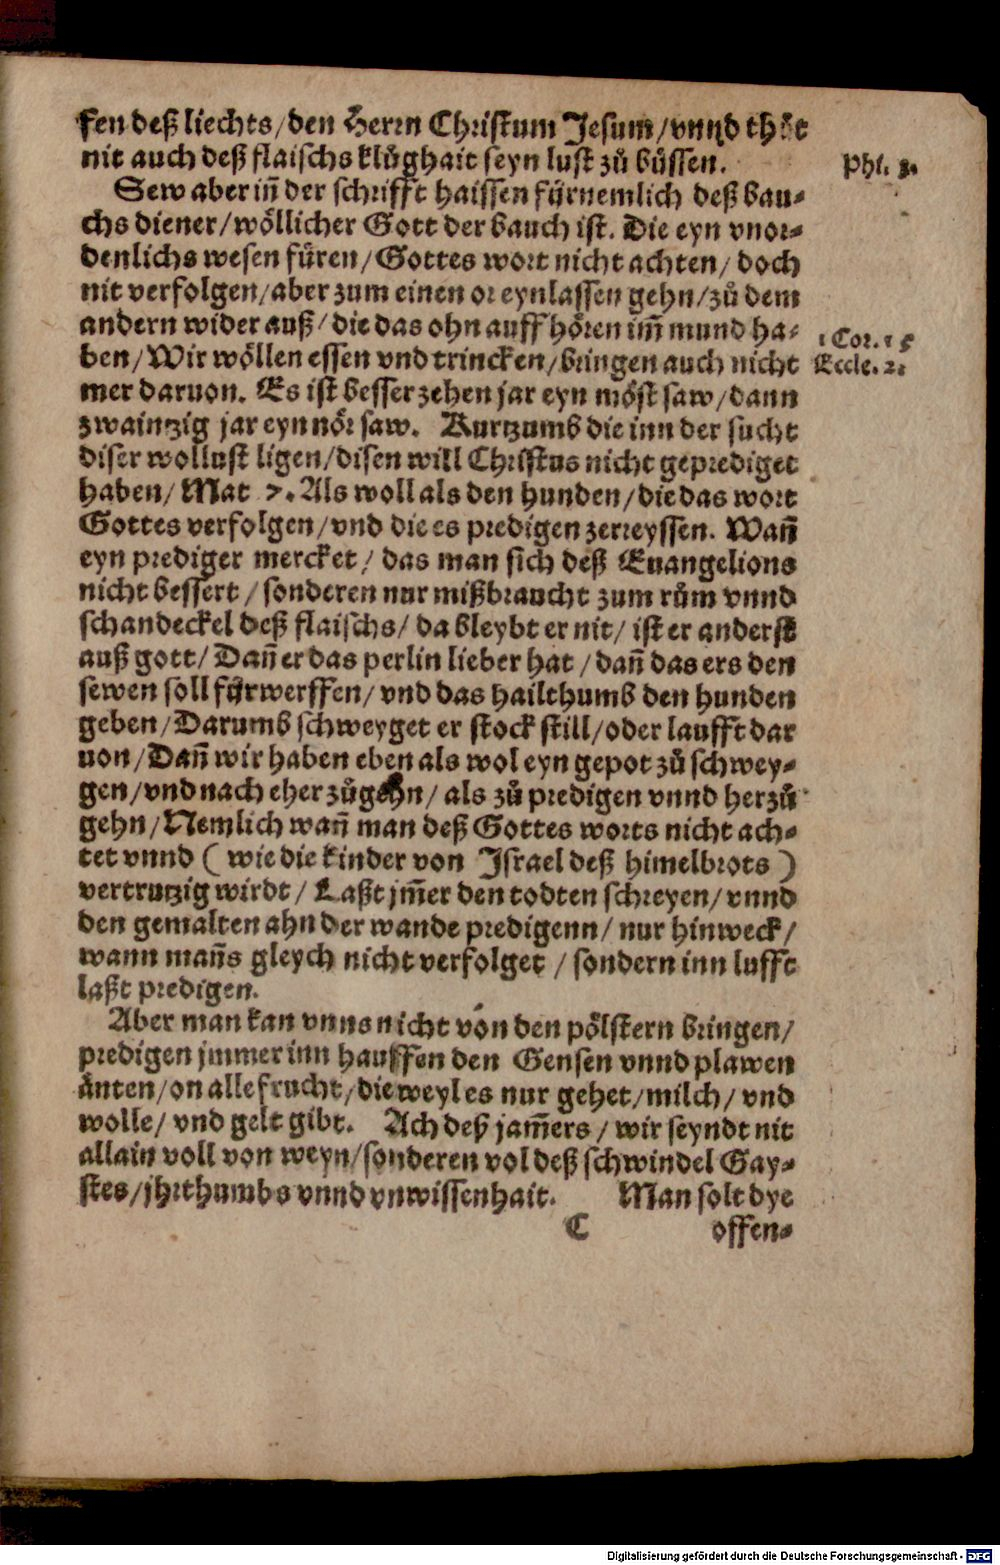 fen deß liechts/den Herrn Christum Jesum/vnnd thůt
nit auch deß flaischs klůghait seyn lust zů bůssen.
Phl. 3.
Sew aber iñ der schrifft haissen fürnemlich deß bau-
chs diener/wöllicher Gott der bauch ist. Die eyn vnor-
denlichs wesen füren/Gottes wort nicht achten/doch
nit verfolgen/aber zum einen or eynlassen gehn/zů dem
andern wider auß/die das ohn auffhören im̃ mund ha-
1 Cor. 15
ben/Wir wöllen essen vnd trincken/bringen auch nicht
Eccle. 2.
mer daruon. Es ist besser zehen jar eyn möst saw/dann
zwaintzig jar eyn nör saw. Kurtzumb die inn der sucht
diser wollust ligen/disen will Christus nicht geprediget
haben/Mat 7. Als woll als den hunden/die das wort
Gottes verfolgen/vnd die es predigen zerreyssen. Wañ
eyn prediger mercket/das man sich deß Euangelions
nicht bessert/sonderen nur mißbraucht zum rům vnnd
schandeckel deß flaischs/da bleybt er nit/ist er anderst
auß gott/Dañ er das perlin lieber hat/dañ das ers den
sewen soll fürwerffen/vnd das hailthumb den hunden
geben/Darumb schweyget er stock still/oder laufft dar
uon/Dañ wir haben eben als wol eyn gepot zů schwey-
gen/vnd nach eher zůgehn/als zů predigen vnnd herzů
gehn/Nemlich wañ man deß Gottes worts nicht ach-
tet vnnd (wie die kinder von Israel deß himelbrots)
vertrutzig wirdt/Laßt jm̃er den todten schreyen/vnnd
den gemalten ahn der wande predigenn/nur hinweck/
wann mañs gleych nicht verfolget/sondern inn lufft
laßt predigen.
Aber man kan vnns nicht von den pölstern bringen/
predigen jmmer inn hauffen den Gensen vnnd plawen
änten/on alle frucht/die weyl es nur gehet/milch/vnd
wolle/vnd gelt gibt. Ach deß jam̃ers/wir seyndt nit
allain voll von weyn/sonderen vol deß schwindel Gay-
stes/jhrthumbs vnnd vnwissenhait. Man solt dye
C offen-
Digitalisierung gefördert durch die Deutsche Forschungsgemeinschaft - DFG